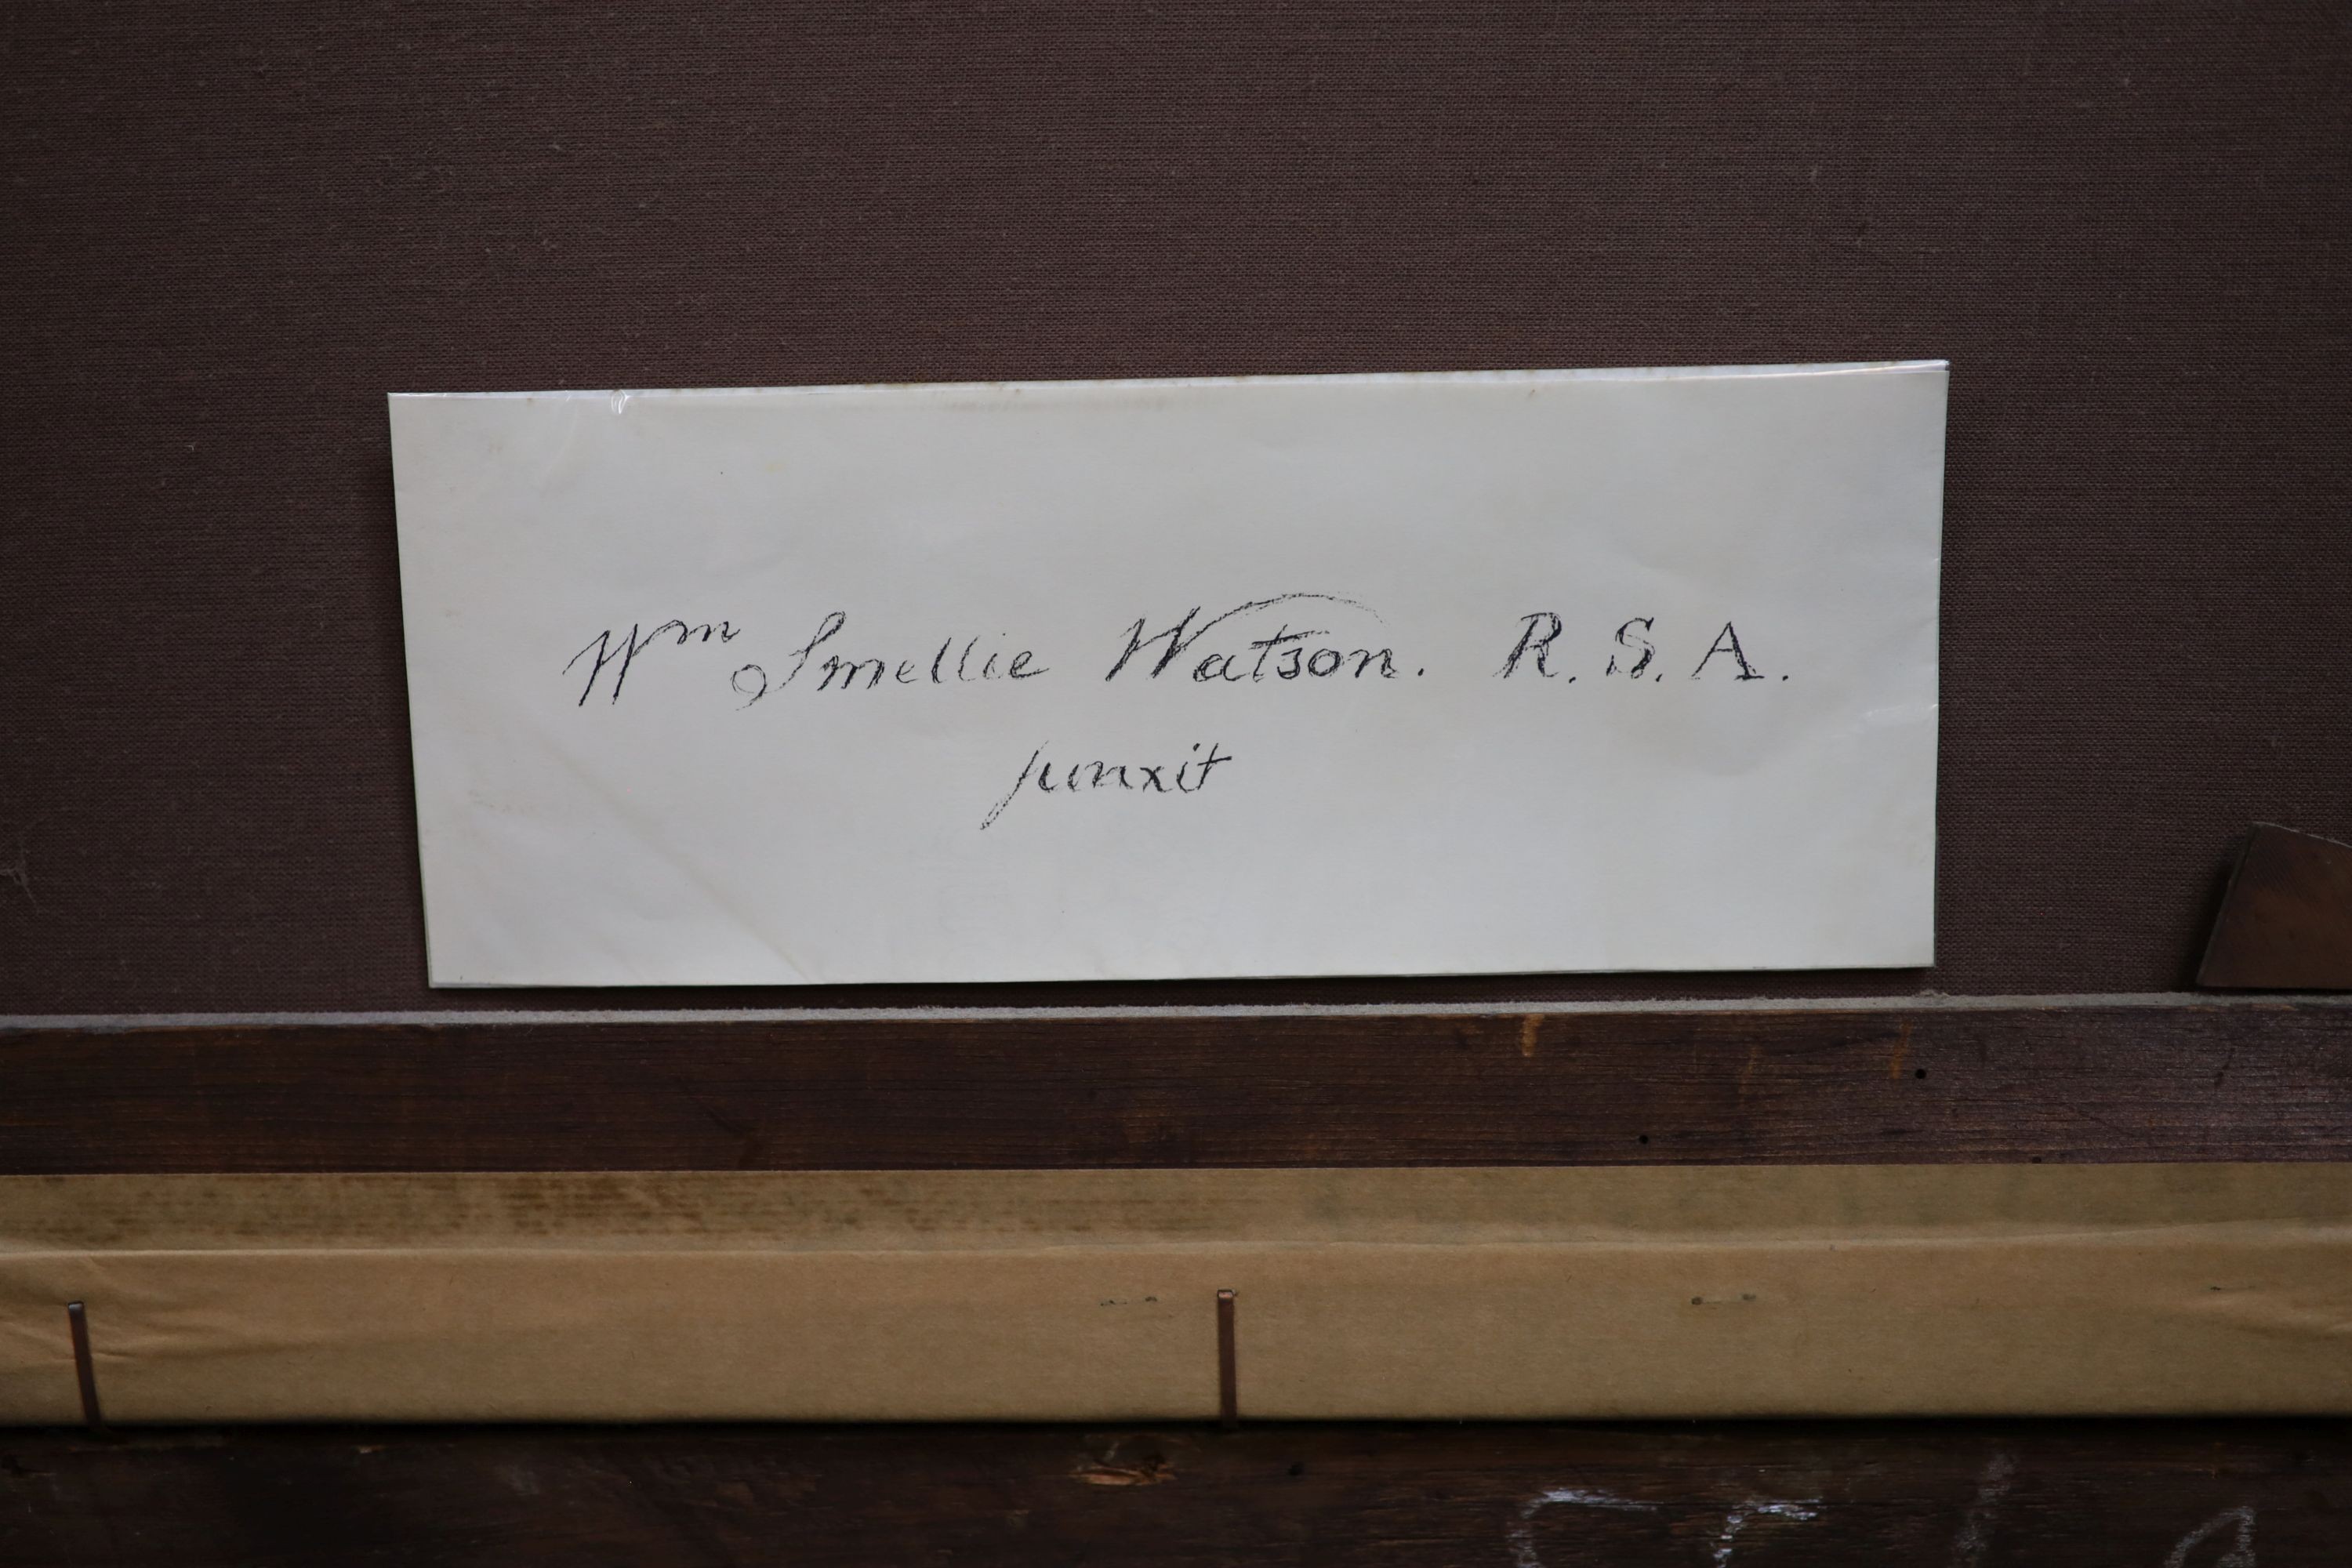 Wm Smellie Watson. R. S. A.
pinxit